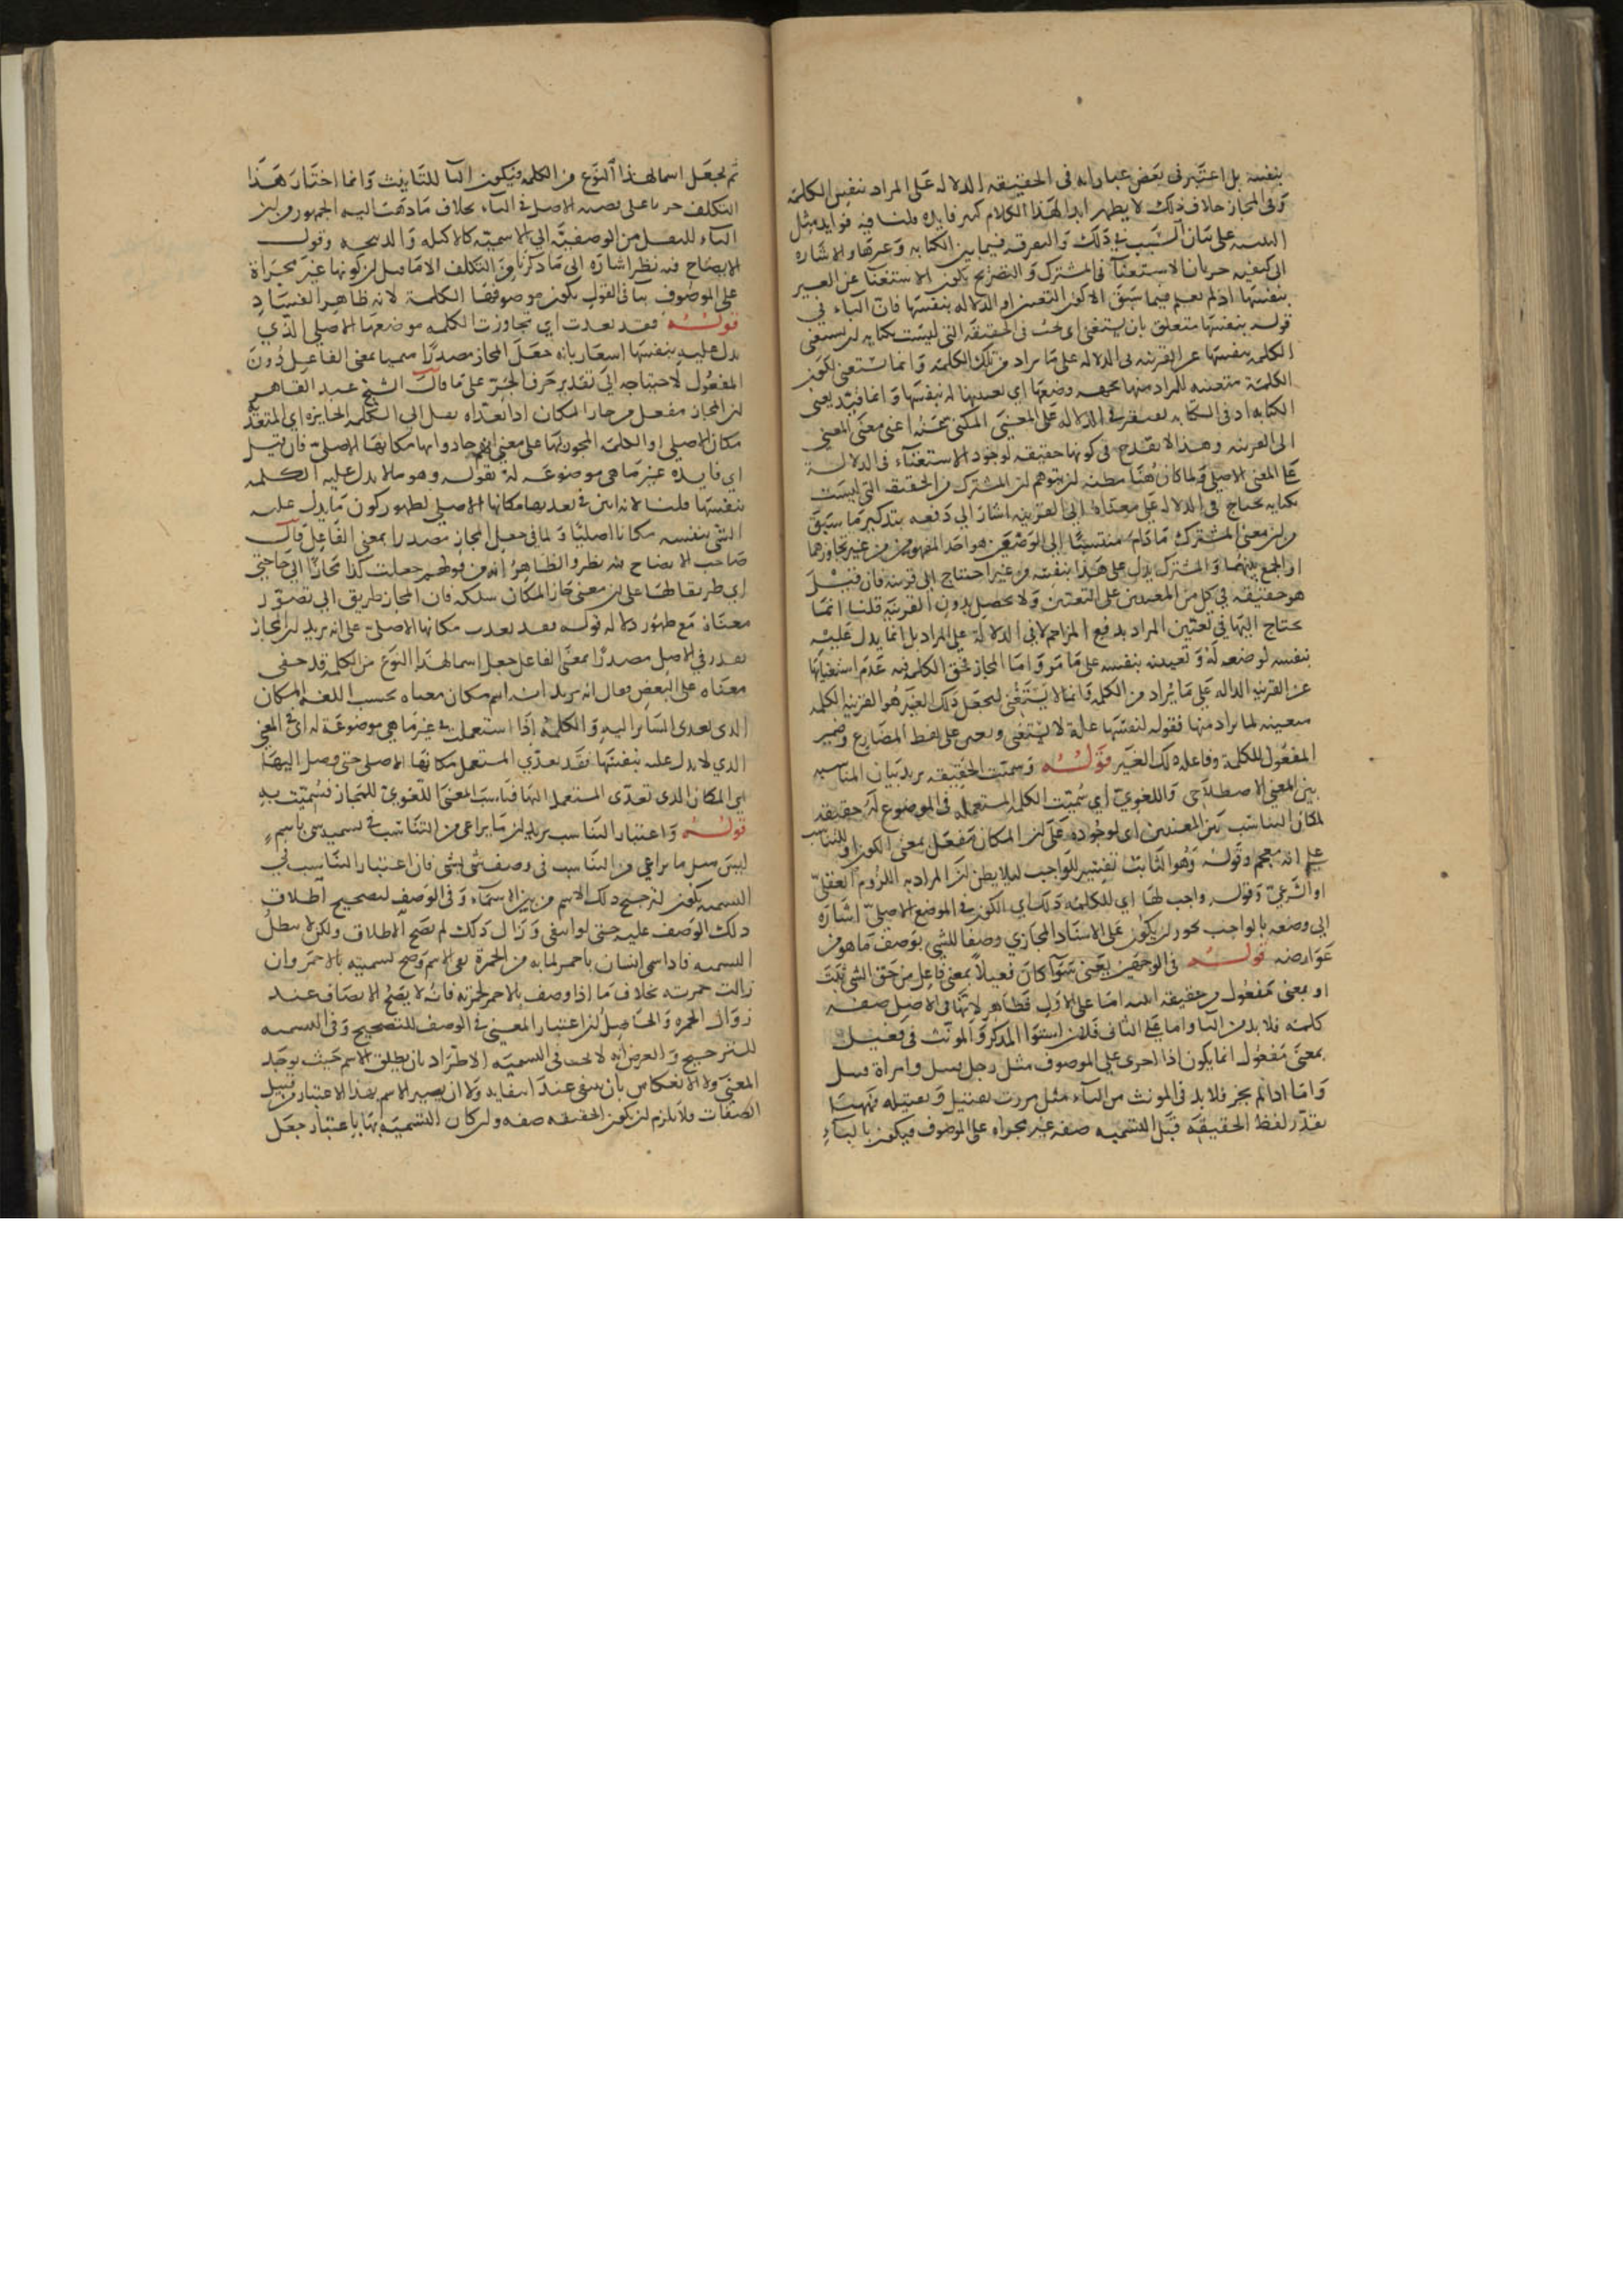 بنفسه بل اعتبر في بعض عباراته في الحقيقة الدلالة على المراد بنفس الكلمة
وفي المجاز خلاف ذلك لا يظهر لهذا الكلام كثير فايدة قلنا فيه فوايد مثل
على بيان السبب في ذلك والتفرقة فيما بين الكناية وغيرها والاشارة
الى كيفية جريان الاستغناء في المشترك والتصريح بكون الاستغناء عن الغير
بنفسها اذ لم يعلم فيما سبق الا كون التعيين او الدلالة بنفسها فان الباء في
قوله بنفسها متعلق بان يستغنى اي يجب في الحقيقة التي ليست بكناية ان يستغنى
الكلمة بنفسها عن القرينة في الدلالة على ما يراد من تلك الكلمة وانما يستغنى لكون
الكلمة متعينة للمراد منها بجهة وضعها اي تعيينها له بنفسها وانما قيد بغير
الكناية اذ في الكناية يفتقر في الدلالة على المعنى المكنى عنه اعني معنى المعنى
الى القرينة وهذا لا يقدح في كونها حقيقة لوجود الاستغناء في الدلالة
على المعنى الاصلي ولما كان هنا مظنة ان يتوهم ان المشترك من الحقيقة التي ليست
بكناية يحتاج في الدلالة على معناه الى القرينة اشار الى دفعه بتذكير ما سبق
من ان معنى المشترك ما دام منتسبا الى الوضعين هو احد المفهومين من غير تجاوزهما
او الجمع بينهما والمشترك يدل على هذا بنفسه من غير احتياج الى قرينة فان قيل
هو حقيقة في كل من المعنيين على التعيين ولا يحصل بدون القرينة قلنا انما
يحتاج اليها في تعيين المراد بدفع المزاحم لا في الدلالة على المراد بل انما يدل عليه
بنفسه لوضعه له وتعيينه بنفسه على ما مر واما المجاز فحق الكلمة فيه عدم استغنائها
عن القرينة الدالة على ما يراد من الكلمة وانما لا يستغنى ليجعل ذلك الغير هو القرينة الكلمة
متعينة لما يراد منها فقوله لنفسها علة لا يستغنى ويعين على لفظ المضارع وضمير
المفعول للكلمة وفاعله ذلك الغير قوله وسميت الحقيقة يريد بيان المناسبة
بين المعنى الاصطلاحي واللغوي اي سميت الكلمة المستعملة في الموضوع له حقيقة
لمكان التناسب بين المعنيين اي لوجوده على ان المكان مفعل بمعنى الكون او للتناسب
على انه مقحم وقوله وهو الثابت تفسير للواجب ليلا يظن ان المراد به اللزوم العقلي
او الشرعي وقوله واجب لها اي للكلمة ذلك اي الكون في الموضع الاصلي اشارة
الى وصفه بالواجب يجوز ان يكون على الاسناد المجازي وصفا للشي بوصف ما هو من
عوارضه قوله في الوجهين يعني سوا كان فعيلا بمعنى فاعل من حق الشي ثبت
او بمعنى مفعول من حقيقة اثبته اما على الاول فظاهر لانها في الاصل صفة
كلمة فلا بد من التا واما على الثاني فلان استوا المذكر والمونث في فعيل
بمعنى مفعول انما يكون اذا اجري على الموصوف مثل رجل قتيل وامراة قتيل
واما اذا لم يجر فلا بد في المونث من التاء مثل مررت بقتيل وبقتيلة فههنا
يقدر لفظ الحقيقة قبل التسمية صفة غير مجراة على الموصوف فيكون بالتاء
ثم يجعل اسما لهذا النوع من الكلمة فيكون التا للتانيث وانما اختار هذا
التكلف جريا على الاصل في التاء بخلاف ما ذهب اليه الجمهور من ان
التاء للنقل من الوصفية الى الاسمية كالاكيلة والذبيحة وقول
الايضاح فيه نظر اشارة الى ما ذكرنا من التكلف الا ما قيل ان كونها غير مجراة
على الموصوف ينافي القول بكون موصوفها الكلمة لانه ظاهر الفساد
قوله فقد تعدت اي تجاوزت الكلمة موضعها الاصلي الذي
يدل عليه بنفسها اشعار بانه جعل المجاز مصدرا ميميا بمعنى الفاعل دون
المفعول لاحتياجه الى تقدير حرف الجر على ما قال الشيخ عبد القاهر
ان المجاز مفعل من جاز المكان اذا تعداه نقل الى الكلمة الجايزة اي المتعدية
مكانها الاصلي او الكلمة المجوز بها على معنى انهم جازوا بها مكانها الاصلي فان قيل
اي فايدة غير ما هي موضوعة له بقوله وهو ما لا يدل عليه الكلمة
بنفسها قلنا لانه ابين في تعديها مكانها الاصلي لظهور كون ما يدل عليه
الشي بنفسه مكانا اصليا ولما في جعل المجاز مصدرا بمعنى الفاعل قال
صاحب الايضاح فيه نظر والظاهر انه من قولهم جعلت كذا مجازا الى حاجتي
اي طريقا لها على ان معنى جاز المكان سلكه فان المجاز طريق الى تصور
معناه مع ظهور دلالة قوله فقد تعدت مكانها الاصلي على انه يريد ان المجاز
يقدر في الاصل مصدرا بمعنى الفاعل جعل اسما لهذا النوع من الكلمة قد خفي
معناه على البعض فقال انه يريد انه اسم مكان معناه بحسب اللغة المكان
الذي تعدى الساير اليه والكلمة اذا استعملت في غير ما هي موضوعة له اي في المعنى
الذي لا يدل عليه بنفسها فقد تعدى المستعمل مكانها الاصلي حتى وصل اليها
اي المكان الذي تعدى المستعمل اليها فناسب المعنى اللغوي للمجاز فسميت به
قوله واعتبار التناسب يريد ان ما يراعى من التناسب في تسمية شي باسم
ليس مثل ما يراعى من التناسب في وصف شي بشي فان اعتبار التناسب في
التسمية يكون لترجيح ذلك الاسم من بين الاسماء وفي الوصف لتصحيح اطلاق
ذلك الوصف عليه حتى لو انتفى وزال ذلك لم يصح الاطلاق ولكن لا يبطل
التسمية فاذا سمي انسان باحمر لما به من الحمرة بقي الاسم وصح تسميته بالاحمر وان
زالت حمرته بخلاف ما اذا وصف بالاحمر لحمرته فانه لا يصح الاتصاف عند
زوال الحمرة والحاصل ان اعتبار المعنى في الوصف للتصحيح وفي التسمية
للترجيح والغرض انه لا يجب في التسمية الاطراد بان يطلق الاسم حيث يوجد
المعنى ولا الانعكاس بان ينتفى عند انتفايه ولا ان يصير الاسم بهذا الاعتبار من قبيل
الصفات فلا يلزم ان يكون الحقيقة صفة وان كان التسمية بها باعتبار جعل